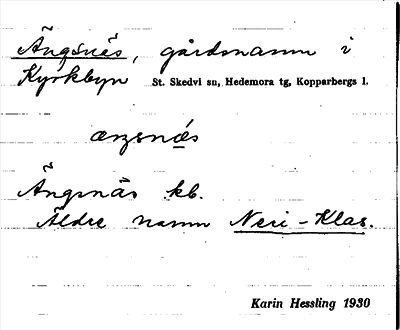 Ängsnäs, gårdsnamn i
Kyrkbyn St. Skedvi sn, Hedemora tg, Kopparbergs l.
Ängsnäs kb.
Äldre namn Neri-Klas.
Karin Hessling 1930